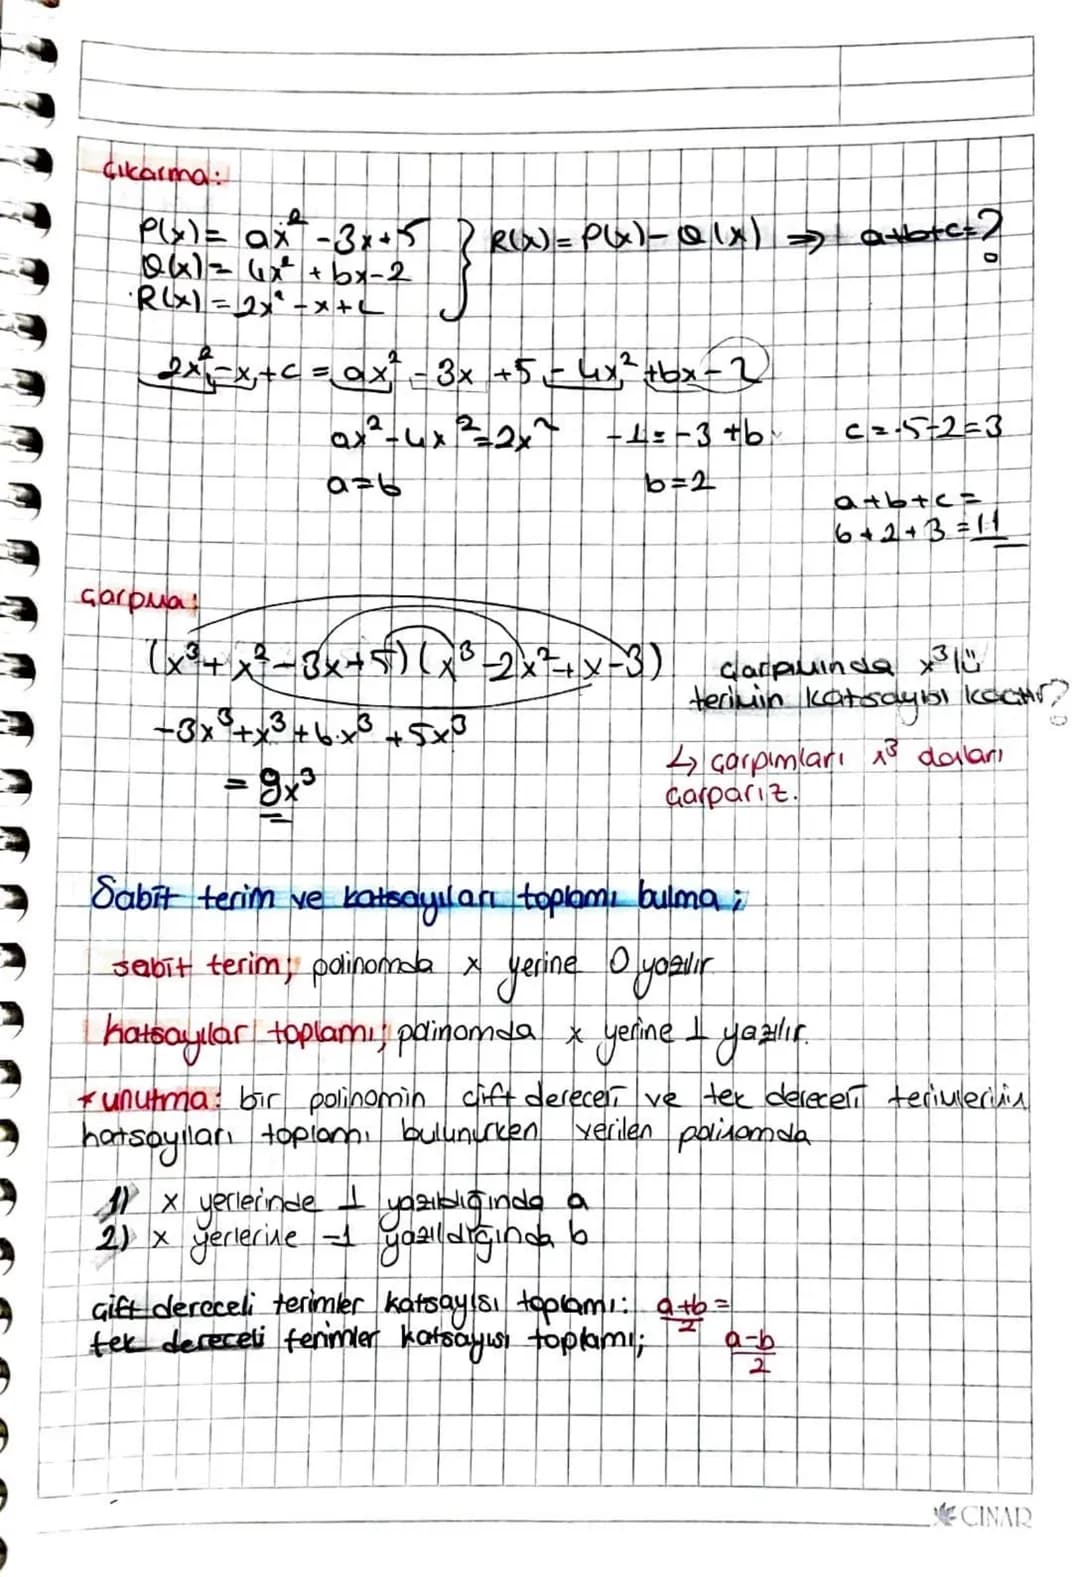 Çıkarma:
P(x)= ax² -3x+5
Q(x)= 4x² + bx-2
R(x)=2x² -x+c
} R(x)= P(x)- Q(x) ⇒ a+b+c=?
2x²-x+c = ax² - 3x +5 - 4x² +bx - 2
ax²-4x²=2x² -1=-3 +b c=5-2=3
a=6 b=2
a+b+c=
6+2+3=11
Çarpma:
(x³+x²-3x+5)(x³-2x²+x-3) çarpımında x³lü
terimin katsayısı kaçtır?
-3x³+x³+6x³+5x³
= 9x³
↳ çarpımları x³ olanları
çarparız.
Sabit terim ve katsayıları toplamı bulma;
sabit terim; polinomda x yerine 0 yazılır
katsayılar toplamı; polinomda x yerine 1 yazılır.
*unutma: bir polinomin çift dereceli ve tek dereceli terimlerinin
katsayıları toplamı bulunurken verilen polinomda
1) x yerlerinde 1 yazıldığında a
2) x yerlerine -1 yazıldığında b
çift dereceli terimler katsayısı toplamı: a+b/2 =
tek dereceli terimler katsayısı toplamı; a-b/2
ÇINAR